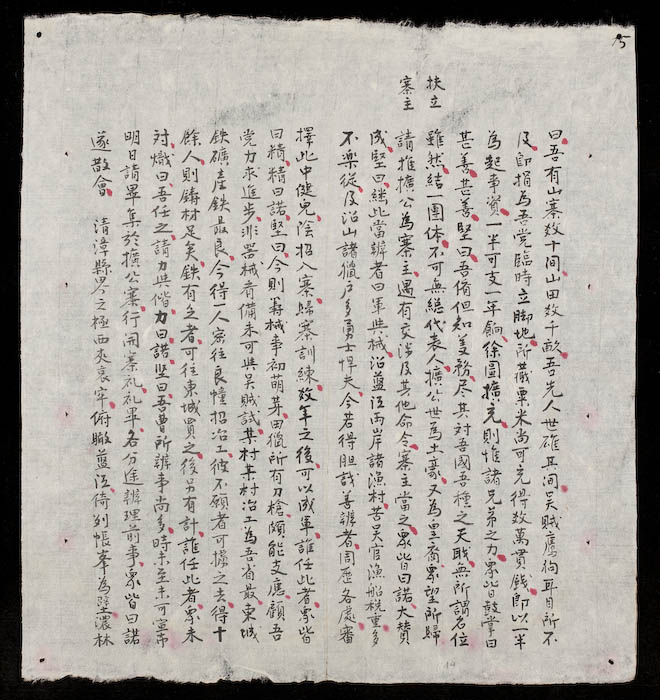 15
扶立
寨主
曰吾有山寨数十間山田数千畝吾先人世確其間吴賊鷹狗耳目所不
及即捐為吾党臨時立脚地所蓄粟米尚可充得数萬貫錢即以一半
為起事資一半可支一年餉徐圖擴充則惟諸兄弟之力衆皆鼓掌曰
甚善甚善堅曰吾儕但知義務尽其对吾國吾種之天職無所謂名位
雖然結一團体不可無總代表人擴公世為土豪又為里裔衆望所歸
請推擴公為寨主遇有交涉及其他命令寨主當之衆皆曰諾大賛
成堅曰継此當辦者曰軍与械沿藍江両岸諸漁村苦吴官漁船税重多
不楽從及沿山諸獵户多勇士悍夫今若得胆哉善辦者周歴各處審
擇此中健児陰招入寨歸寨訓練数年之後可以成軍誰任此者衆皆
曰精精曰諾堅曰今則籌械事初萌芽田獵所有刀槍頗能支應顧吾
党力求進步非器械者備未可与吴賊試某村某村冶工為吾省最東城
鉄礦産鉄最良今得一人密往良幢招冶工彼不願者可擄之去得十
餘人則鑄材足矣鉄有之者可往東城買之後另有計誰任此者衆未
对熾曰吾任之請力与偕力曰諾堅曰吾曹所辦事尚多時未至未可宣布
明日請畢集於擴公寨行開寨礼礼畢各分途辦理前事衆皆曰諾
遂散會 清漳縣界之極西夾哀牢俯瞰藍江倚列帳峯為壁濃林
14